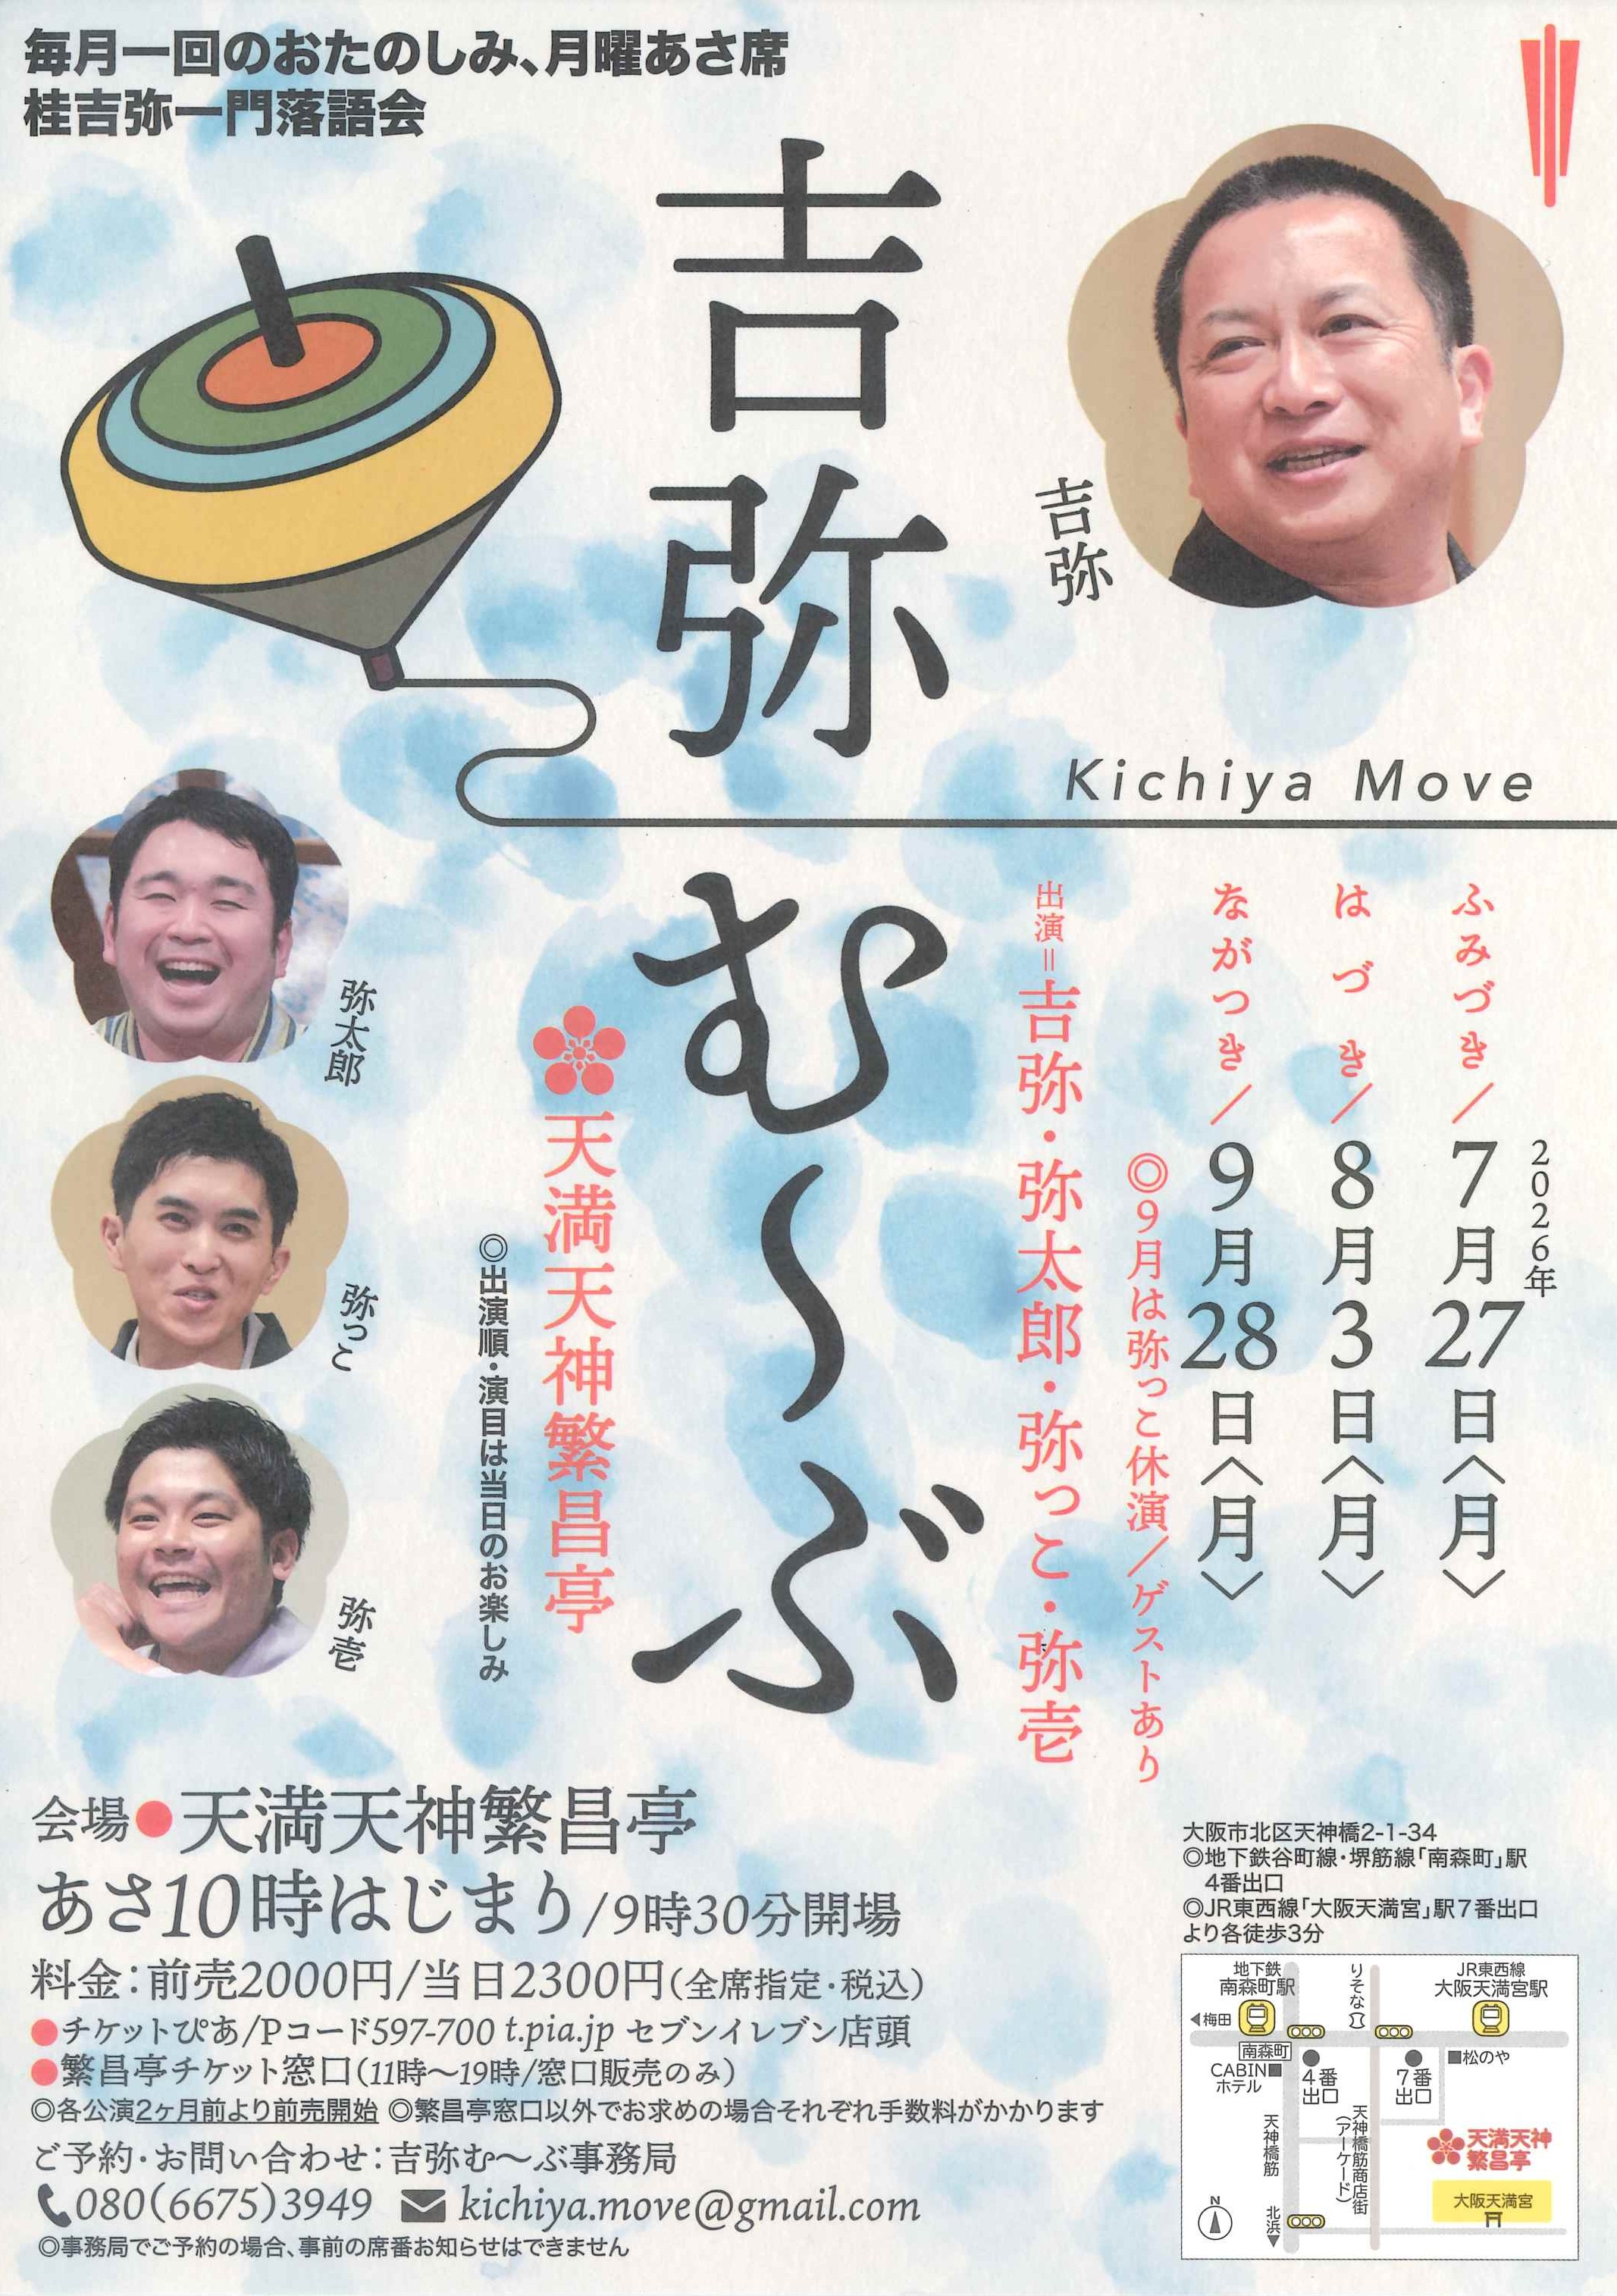 毎月一回のおたのしみ、月曜あさ席
桂吉弥一門落語会
吉弥
む〜ぶ
吉弥
Kichiya Move
2026年
ふみづき/7月27日〈月〉
はづき/8月3日〈月〉
ながつき/9月28日〈月〉
◎9月は弥っこ休演/ゲストあり
出演=吉弥・弥太郎・弥っこ・弥壱
天満天神繁昌亭
◎出演順・演目は当日のお楽しみ
弥太郎
弥っこ
弥壱
会場●天満天神繁昌亭
あさ10時はじまり/9時30分開場
料金:前売2000円/当日2300円(全席指定・税込)
●チケットぴあ/Pコード597-700 t.pia.jp セブンイレブン店頭
●繁昌亭チケット窓口(11時〜19時/窓口販売のみ)
◎各公演2ヶ月前より前売開始 ◎繁昌亭窓口以外でお求めの場合それぞれ手数料がかかります
ご予約・お問い合わせ:吉弥む〜ぶ事務局
080(6675)3949 kichiya.move@gmail.com
◎事務局でご予約の場合、事前の席番お知らせはできません
大阪市北区天神橋2-1-34
◎地下鉄谷町線・堺筋線「南森町」駅
4番出口
◎JR東西線「大阪天満宮」駅7番出口
より各徒歩3分
地下鉄
南森町駅
りそな
JR東西線
大阪天満宮駅
◀梅田
南森町
CABIN■
ホテル
4番
出口
7番
出口
■松のや
天神橋筋
天神橋筋商店街
(アーケード)
天満天神
繁昌亭
大阪天満宮
N
北浜▼